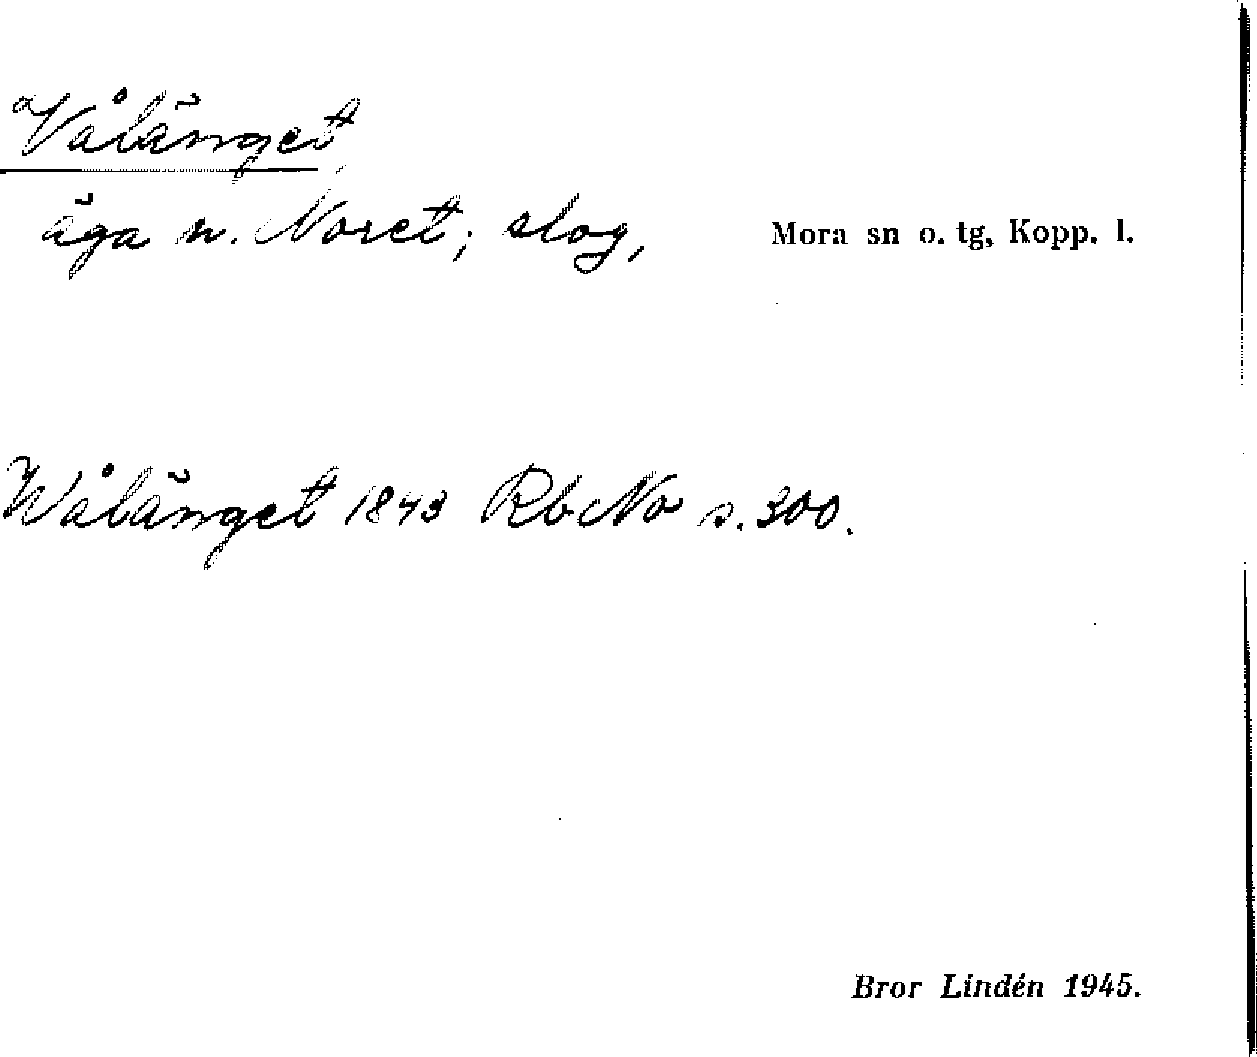 Vålänget
äga n. Noret; slog, Mora sn o. tg, Kopp. l.
Wålänget 1843 RbNo s. 300.
Bror Lindén 1945.